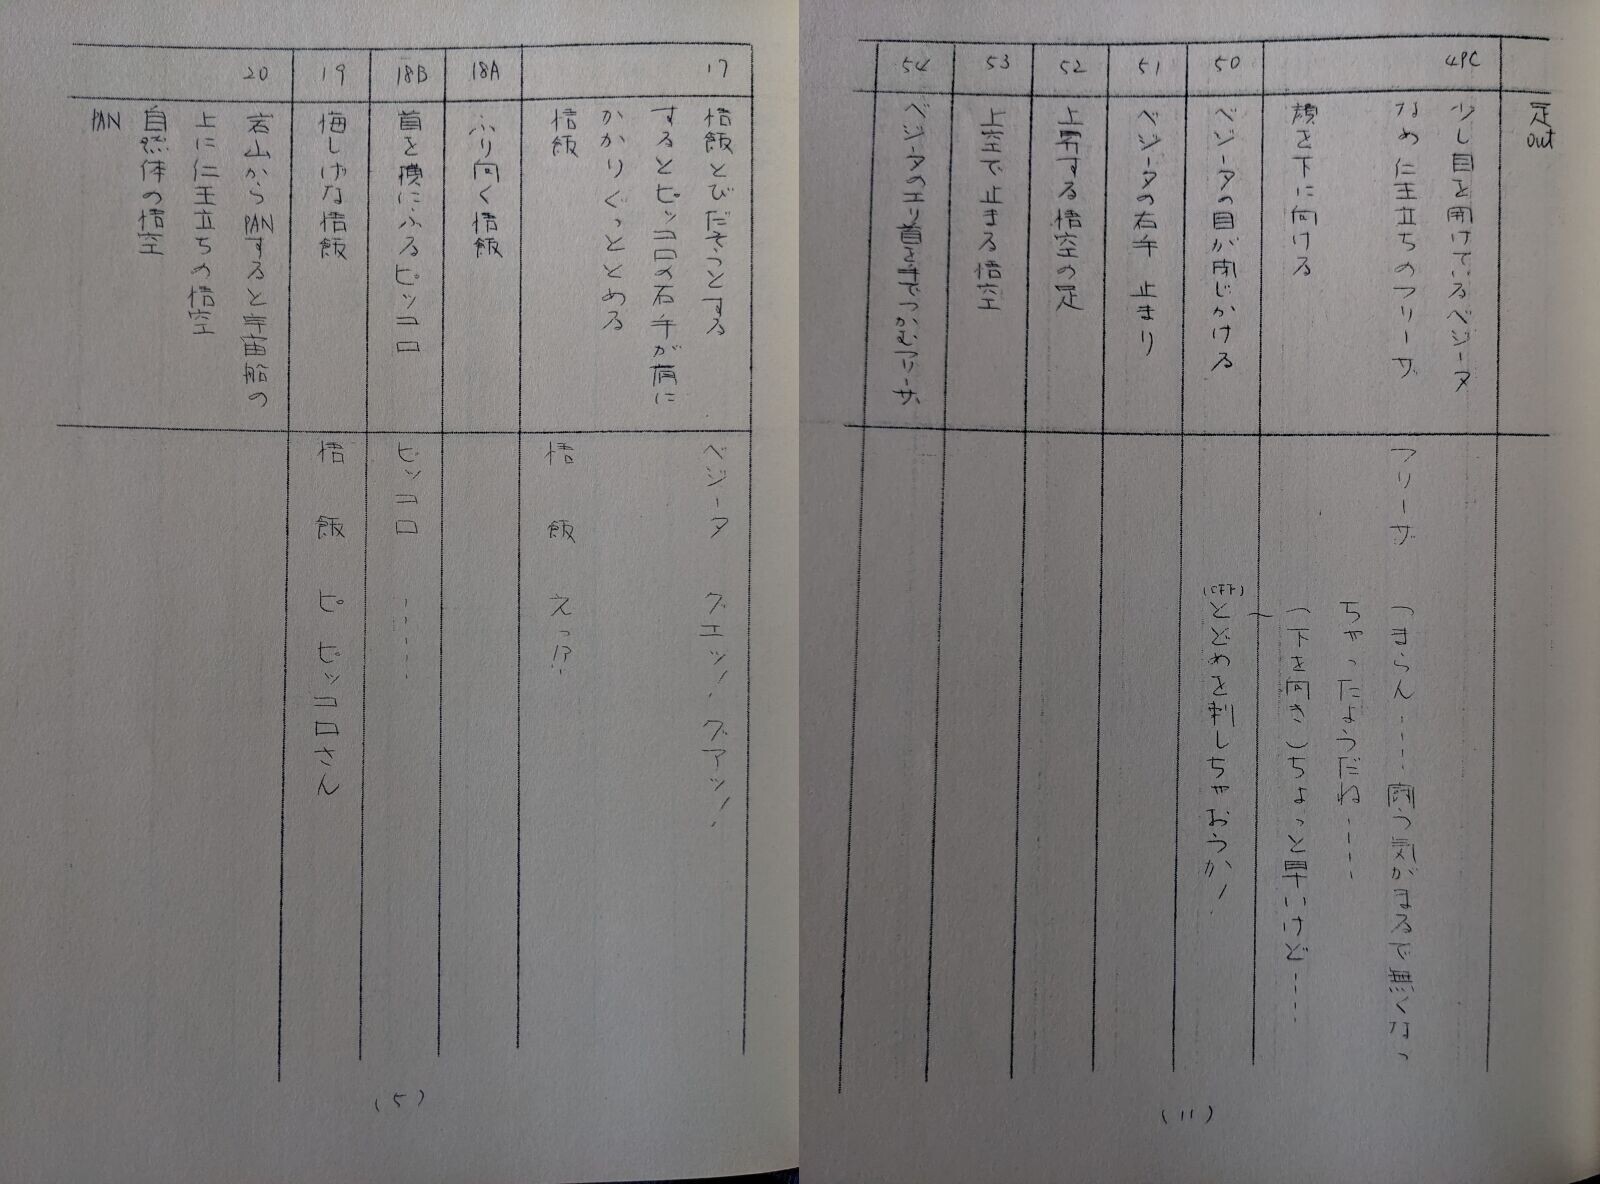 17
悟飯とびだそうとする
するとピッコロの右手が肩に
かかりぐっととめる
悟飯
ベジータ　グエッ！グアッ！
悟　飯　えっ!?
18A
ふり向く悟飯
18B
首を横にふるピッコロ
ピッコロ　……
19
悔しげな悟飯
悟　飯　ピ　ピッコロさん
20
岩山からPANすると宇宙船の
上に仁王立ちの悟空
自然体の悟空
PAN
(5)
足out
49C
少し目を開けているベジータ
なめ　仁王立ちのフリーザ
顔を下に向ける
フリーザ　つまらん……闘う気がまるで無くなっ
ちゃったようだね……
（下を向き）ちょっと早いけど……
50
ベジータの目が閉じかける
(OFF)
とどめを刺しちゃおうか！
51
ベジータの右手　止まり
52
上昇する悟空の足
53
上空で止まる悟空
54
ベジータのエリ首を手でつかむフリーザ
(11)